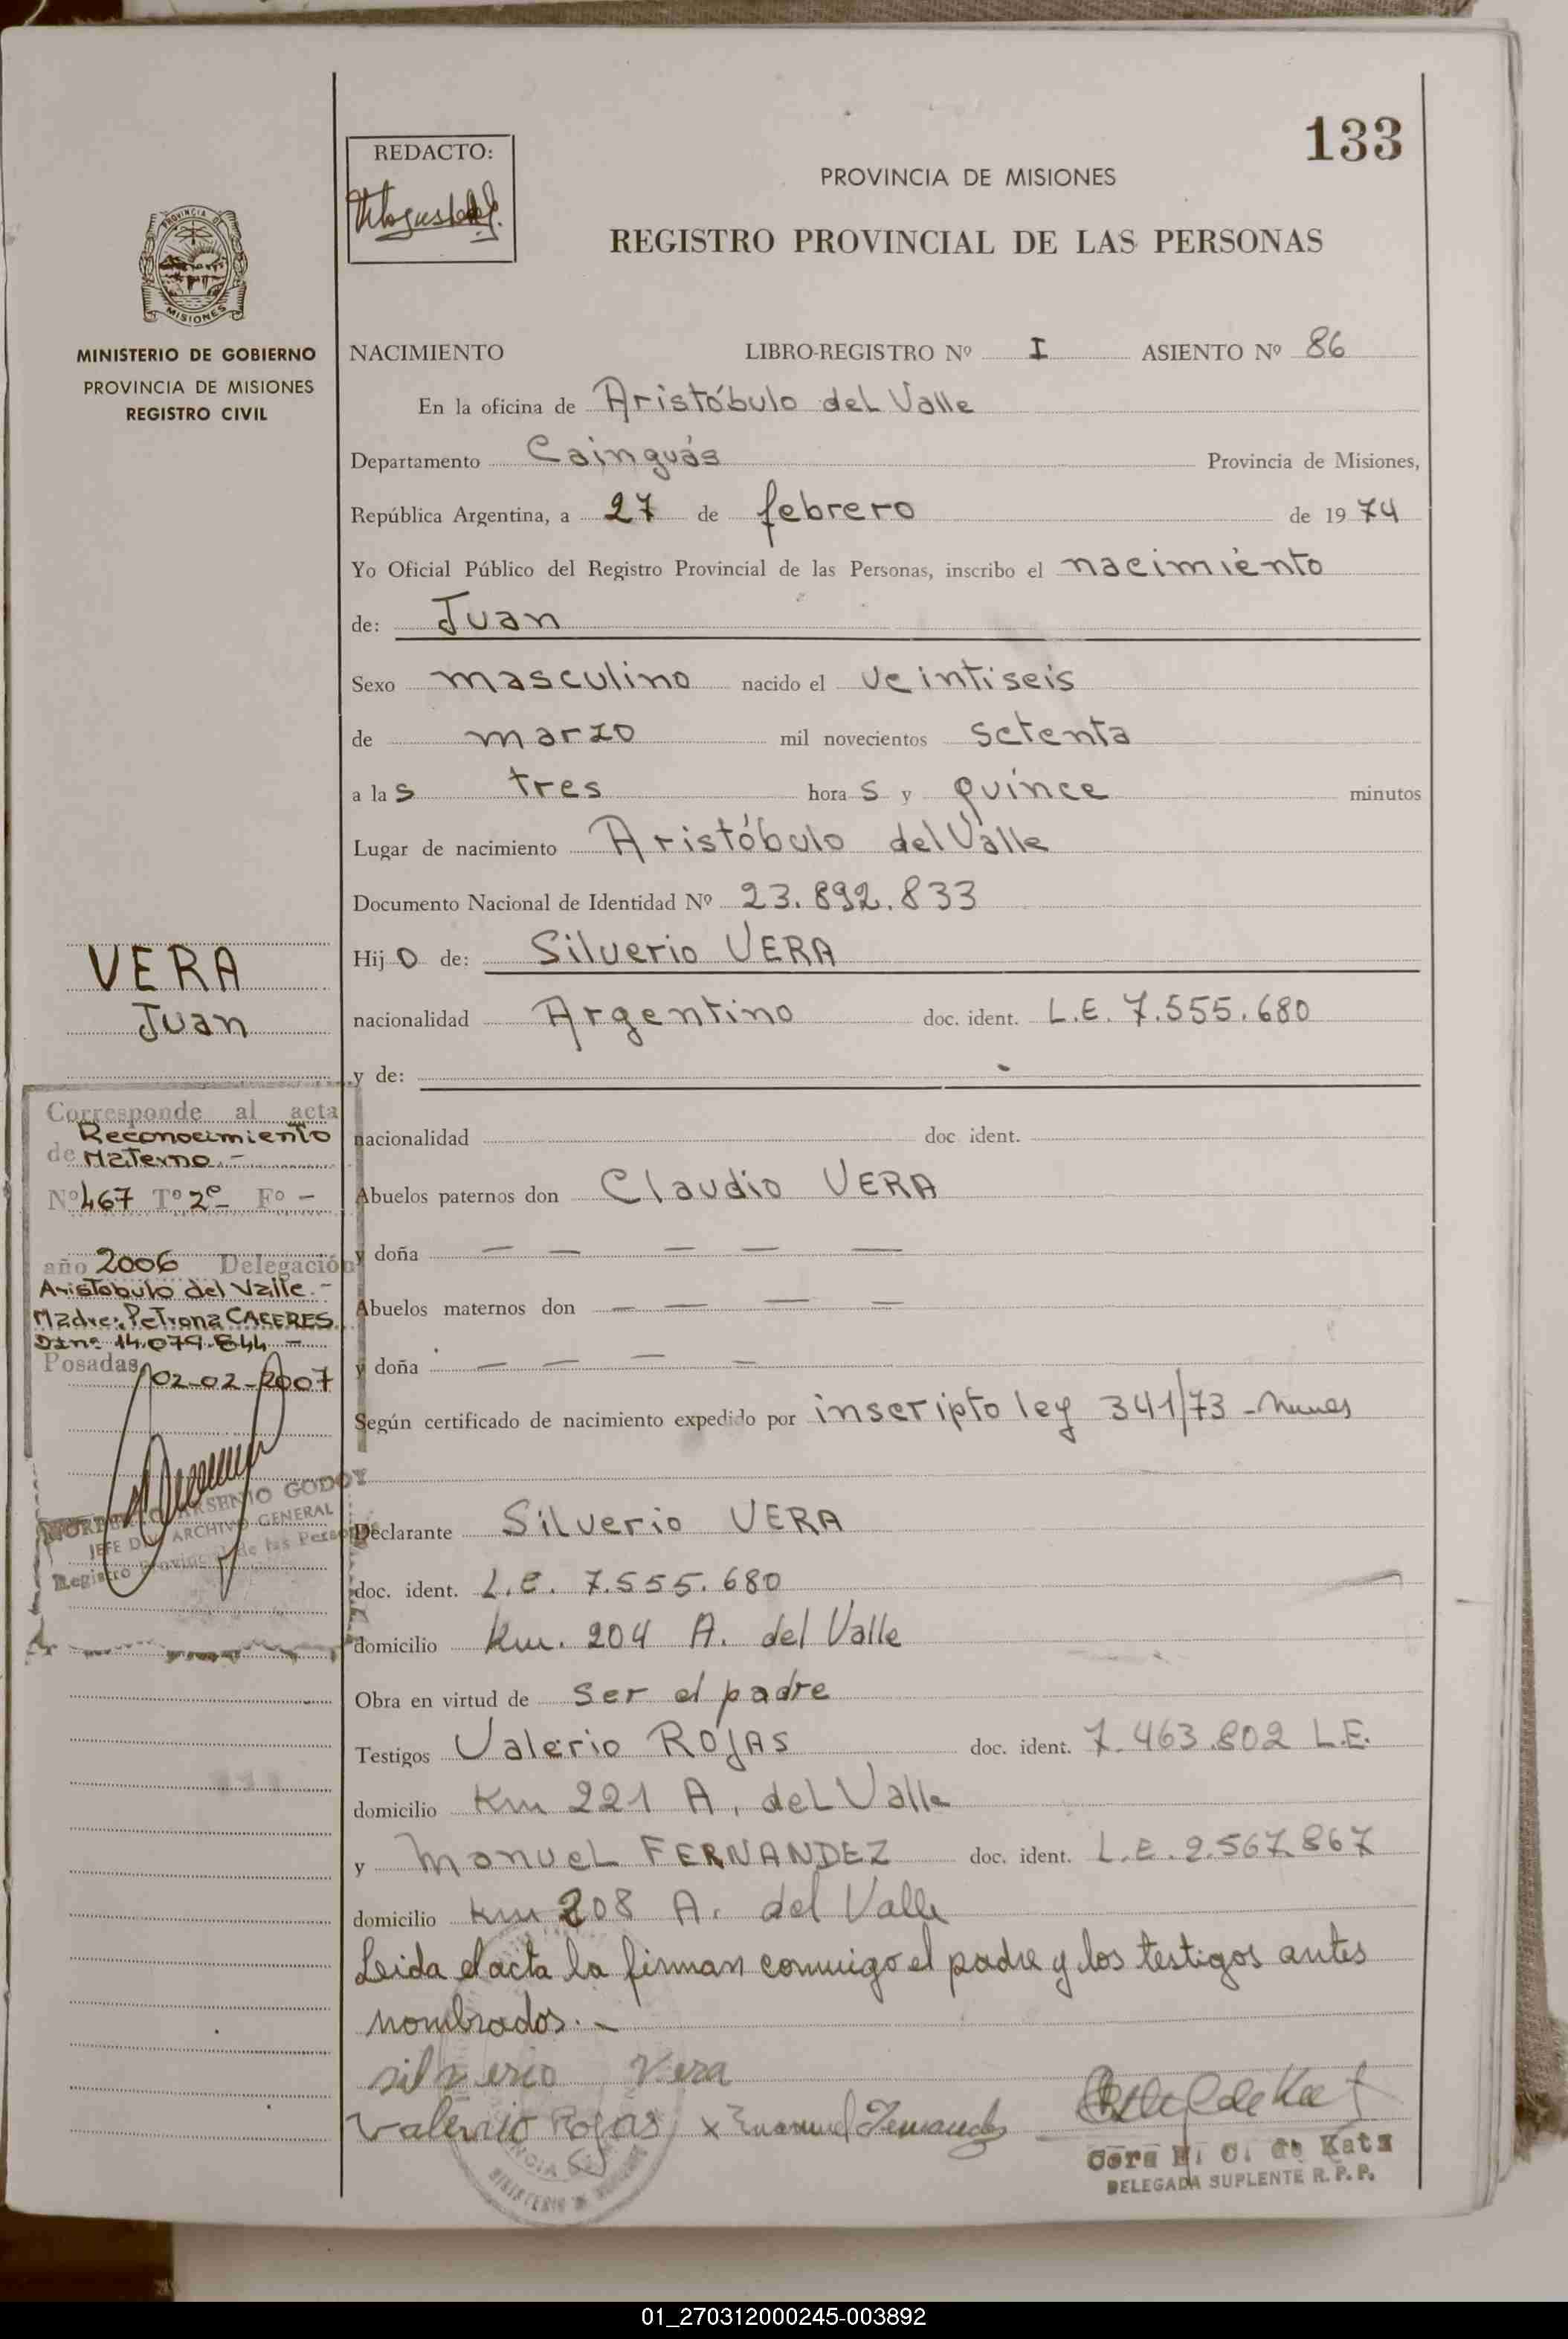 133
REDACTO:
PROVINCIA DE MISIONES
REGISTRO PROVINCIAL DE LAS PERSONAS
PROVINCIA DE
MISIONES
MINISTERIO DE GOBIERNO
PROVINCIA DE MISIONES
REGISTRO CIVIL
NACIMIENTO LIBRO-REGISTRO Nº I ASIENTO Nº 86
En la oficina de Aristóbulo del Valle
Departamento Cainguás Provincia de Misiones,
República Argentina, a 27 de febrero de 1974
Yo Oficial Público del Registro Provincial de las Personas, inscribo el nacimiento
de: Juan
Sexo masculino nacido el veintiseis
de marzo mil novecientos setenta
a las tres horas y quince minutos
Lugar de nacimiento Aristóbulo del Valle
Documento Nacional de Identidad Nº 23.892.833
Hijo de: Silverio VERA
nacionalidad Argentino doc. ident. L.E. 7.555.680
y de:
nacionalidad doc ident.
Abuelos paternos don Claudio VERA
y doña — — — — —
Abuelos maternos don — — — —
y doña — — — —
Según certificado de nacimiento expedido por inscripto ley 341/73 -
Declarante Silverio VERA
doc. ident. L.E. 7.555.680
domicilio km. 204 A. del Valle
Obra en virtud de ser el padre
Testigos Valerio ROJAS doc. ident. 7.463.802 L.E.
domicilio Km 221 A. del Valle
y Manuel FERNANDEZ doc. ident. L.E. 2.567.867
domicilio km 208 A. del Valle
Leida el acta la firman conmigo el padre y los testigos antes
nombrados. -
silverio Vera
Valerio Rojas x Emanuel Fernandes
Cora E. C. de Katz
DELEGADA SUPLENTE R. P. P.
VERA
Juan
Corresponde al acta
Reconocimiento
de Materno. -
Nº 467 Tº 2º Fº -
año 2006 Delegación
Aristobulo del Valle. -
Madre: Petrona CACERES
DI nº 14.079.844 -
Posadas, 02-02-2007
NORBERTO ARSENIO GODOY
JEFE DIV. ARCHIVO GENERAL
Registro Provincial de las Personas
01_270312000245-003892